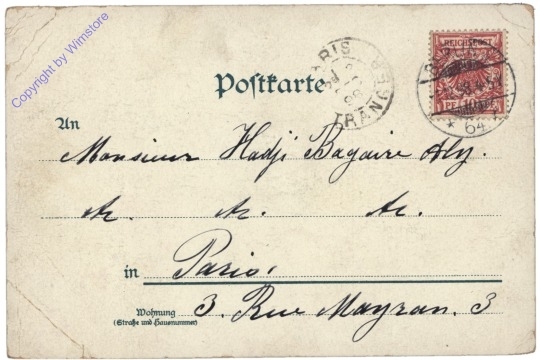 Copyright by Wimstore
PARIS
ETRANGER
REICHSPOST
PFENNIG
64
Postkarte
An
Monsieur Hadji Bagaire Aly.
in
Paris.
3. Rue Mayran. 3
Wohnung
(Straße und Hausnummer)